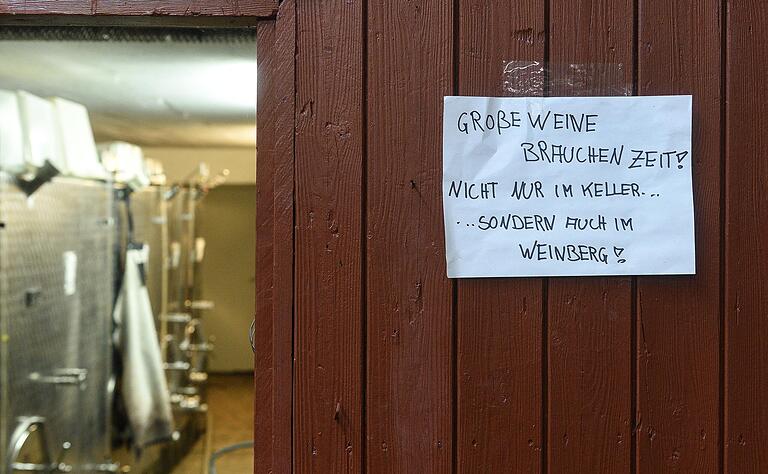 GROßE WEINE
BRAUCHEN ZEIT!
NICHT NUR IM KELLER...
...SONDERN AUCH IM
WEINBERG!